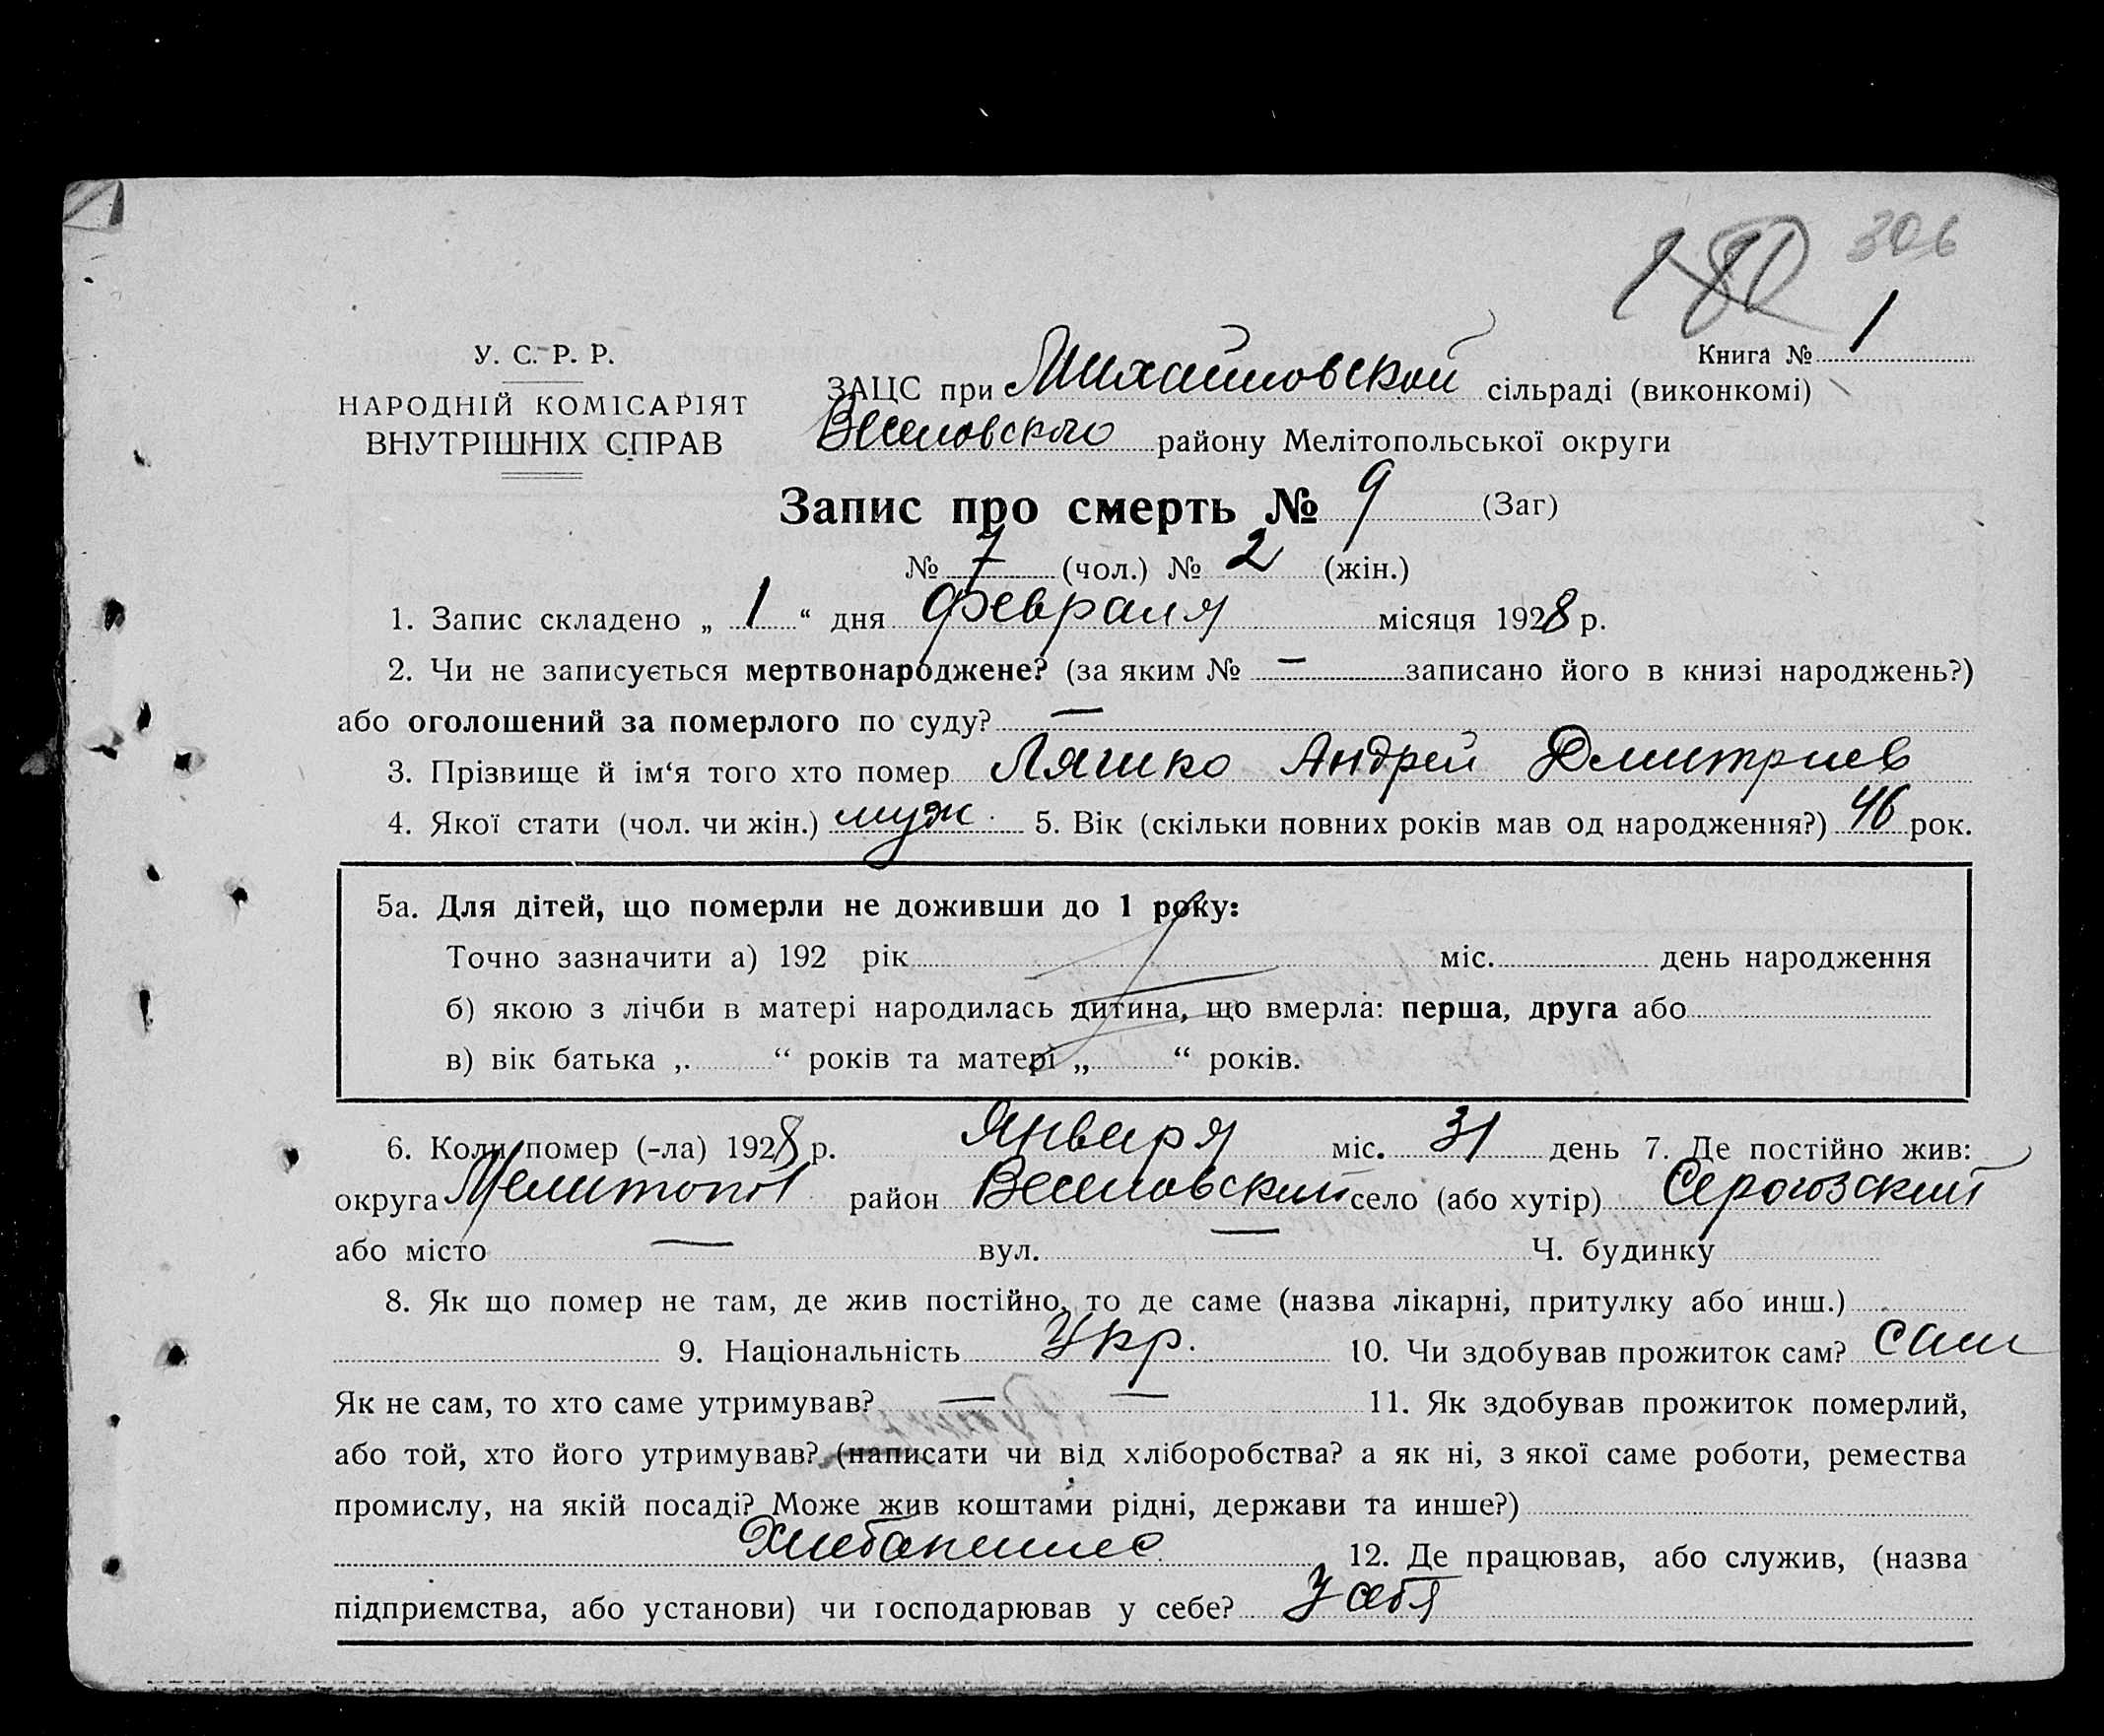 180 306
У. С. Р. Р.
Книга № 1
НАРОДНІЙ КОМІСАРІЯТ
ВНУТРІШНІХ СПРАВ
ЗАЦС при Михайловской сільраді (виконкомі)
Веселовского району Мелітопольської округи
Запис про смерть № 9 (Заг)
№ 7 (чол.) № 2 (жін.)
1. Запис складено „ 1 “ дня февраля місяця 1928 р.
2. Чи не записується мертвонароджене? (за яким № — записано його в книзі народжень?)
або оголошений за померлого по суду? —
3. Прізвище й ім‘я того хто помер Ляшко Андрей Дмитриев
4. Якої стати (чол. чи жін.) муж. 5. Вік (скільки повних років мав од народження?) 46 рок.
5а. Для дітей, що померли не доживши до 1 року:
Точно зазначити а) 192 рік міс. день народження
б) якою з лічби в матері народилась дитина, що вмерла: перша, друга або
в) вік батька „ “ років та матері „ “ років.
6. Коли помер (-ла) 1928 р. Января міс. 31 день 7. Де постійно жив:
округа Мелитопол район Веселовский село (або хутір) Серогозский
або місто — вул. — Ч. будинку
8. Як що помер не там, де жив постійно, то де саме (назва лікарні, притулку або инш.)
9. Національність Укр. 10. Чи здобував прожиток сам? сам
Як не сам, то хто саме утримував? — — 11. Як здобував прожиток померлий,
або той, хто його утримував? (написати чи від хліборобства? а як ні, з якої саме роботи, ремества
промислу, на якій посаді? Може жив коштами рідні, держави та инше?)
12. Де працював, або служив, (назва
підприємства, або установи) чи господарював у себе? У себя